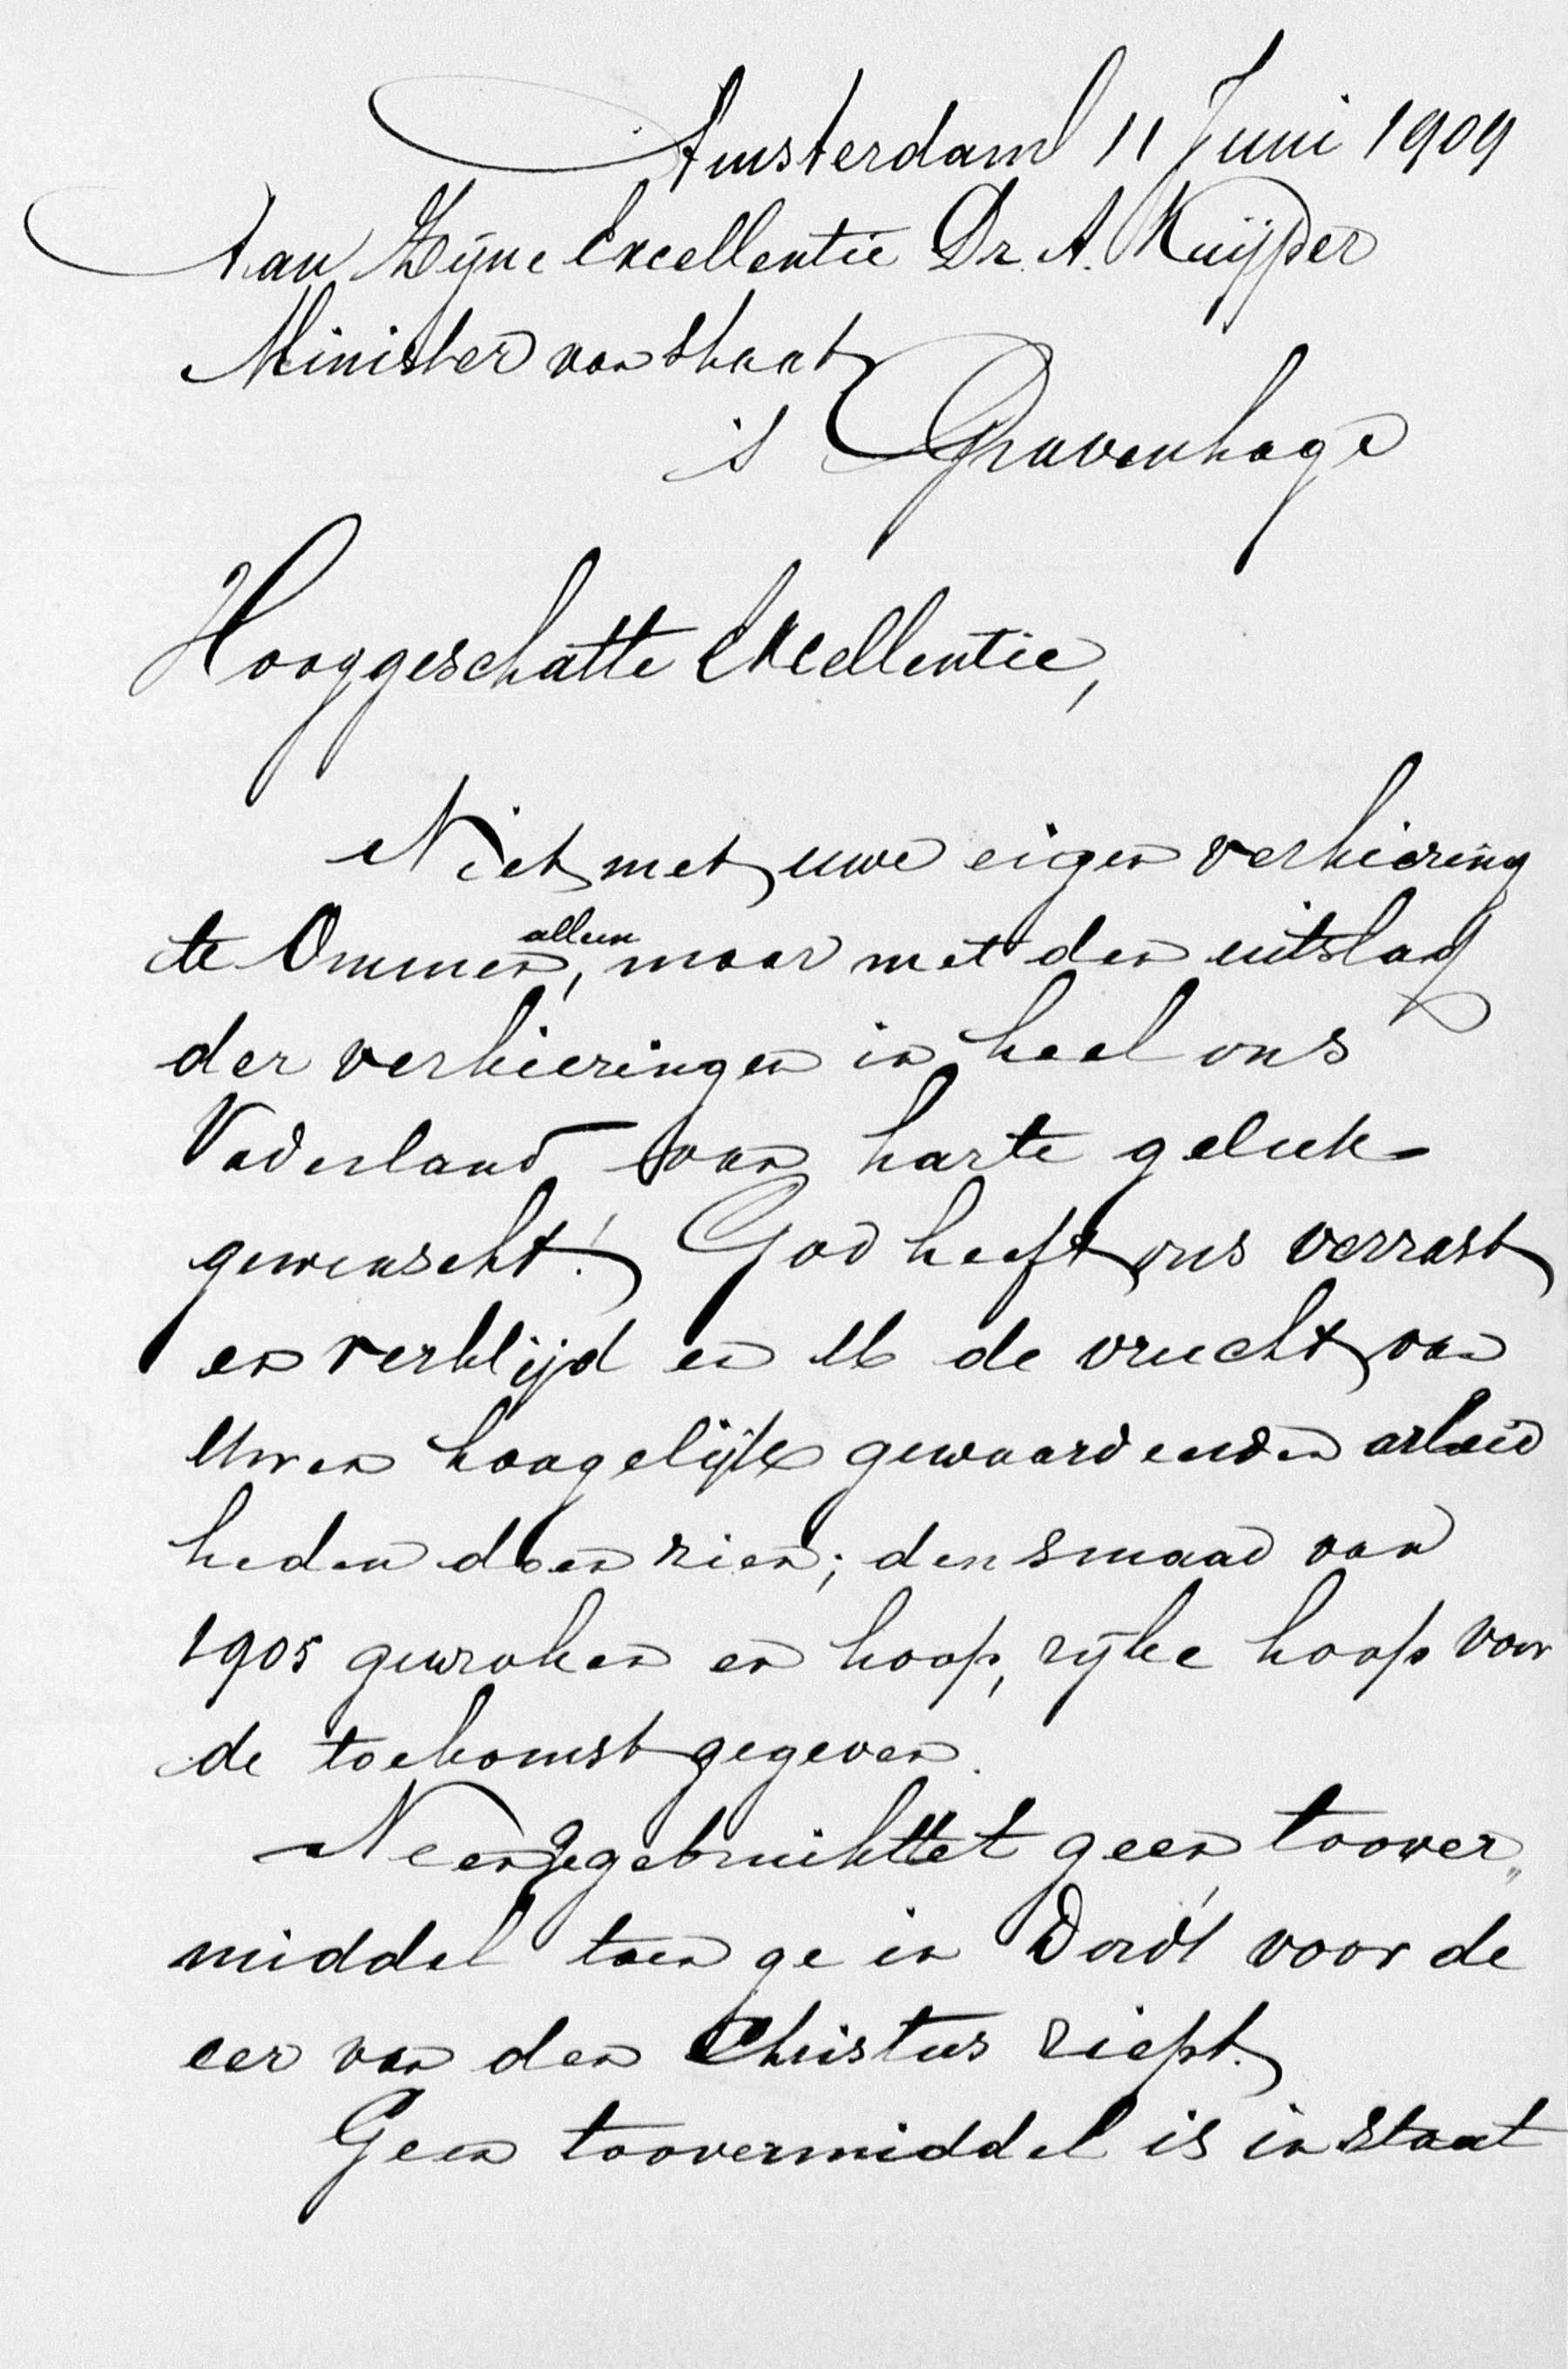 Amsterdam 11 Juni 1909
Aan Zijne Excellentie Dr. A. Kuijper
Minister van Staat
's Gravenhage
Hooggeschatte Excellentie,
Niet met uwe eigen verkiezing
te Ommen, alleen maar met den uitslag
der verkiezingen in heel ons
Vaderland van harte geluk-
gewenscht! God heeft ons verrast
en verblijd en U de vrucht van
Uwen hoogelijk gewaardeerden arbeid
heden doen zien; den smaad van
1905 gewroken en hoop, rijke hoop voor
de toekomst gegeven.
Neen ge gebruiktet geen toover„
middel toen ge in Dordt voor de
eer van den Christus riept.
Geen toovermiddel is in staat